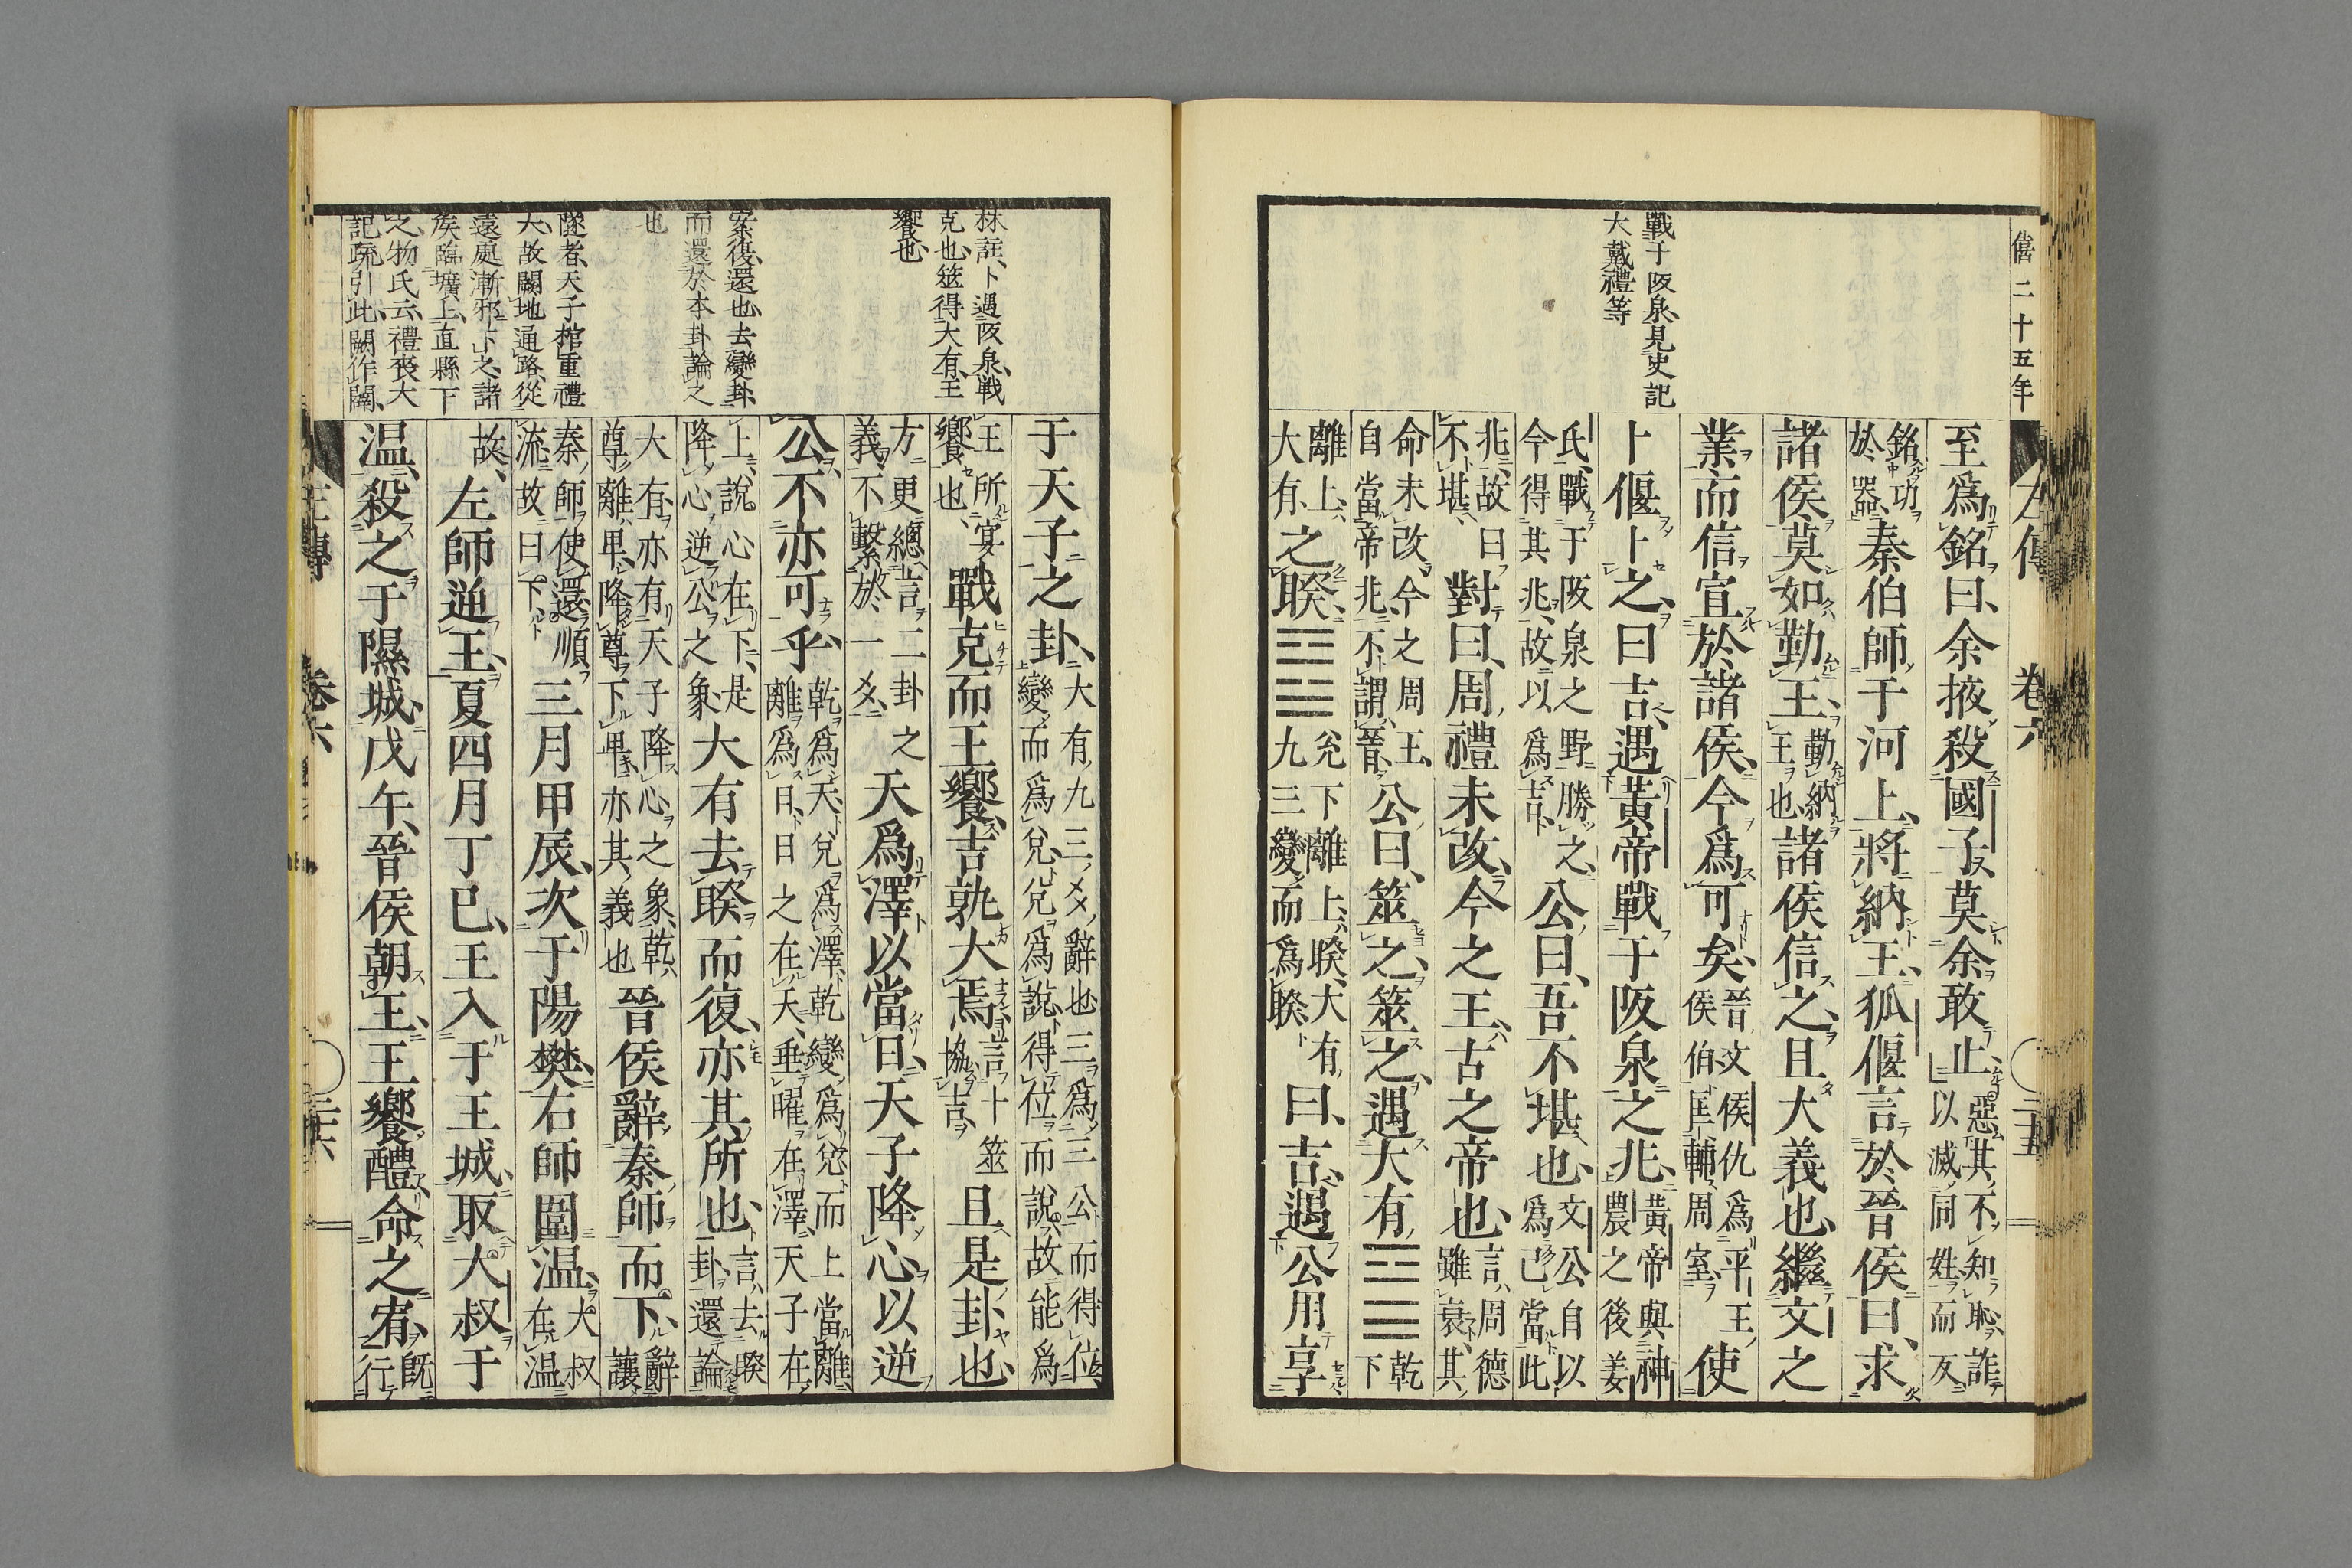 僖二十五年
左傳 卷六 二十五
戰于阪泉見史記
大戴禮等
至爲銘曰、余掖殺國子、莫余敢止、惡其不知恥詐以滅同姓而反
銘功於器、秦伯師于河上、將納王、狐偃言於晉侯曰、求
諸侯、莫如勤王、勤納王也諸侯信之、且大義也、繼文之
業、而信宣於諸侯、今爲可矣、晉文侯仇爲平王侯伯匡輔周室使
卜偃卜之、曰吉、遇黃帝戰于阪泉之兆、黃帝與神農之後姜
氏戰于阪泉之野勝之、今得其兆、故以爲吉公曰、吾不堪也、文公自以爲己當此
兆、故曰不堪、對曰、周禮未改、今之王、古之帝也、言周德雖衰、其
命未改、今之周王自當帝兆、不謂晉公曰、筮之、筮之、遇大有☲☰乾下
離上、大有之睽、☲☱兌下離上、睽、大有九三變而爲睽曰、吉、遇公用享
于天子之卦、大有九三爻辭也三爲三公而得位變而爲兌、兌爲說、得位而說、故能爲
王所宴饗也、戰克而王饗、吉孰大焉、言卜筮協吉且是卦也、
方更總言二卦之義、不繫於一爻、天爲澤以當日、天子降心以逆
公、不亦可乎、乾爲天、兌爲澤、乾變爲兌、而上當離、離爲日、日之在天、垂曜在澤、天子在
上、說心在下、是降心逆公之象大有去睽而復、亦其所也、言去睽卦、還論
大有、亦有天子降心之象、乾尊離卑、降尊下卑、亦其義也晉侯辭秦師而下、辭讓
秦師使還、順流故曰下、三月甲辰、次于陽樊、右師圍溫、大叔在溫
故、左師逆王、夏四月丁巳、王入于王城、取大叔于
溫、殺之于隰城、戊午、晉侯朝王、王饗醴、命之宥、既行
林註、卜遇阪泉、戰
克也、筮得大有、王
饗也
案復還也、去變卦
而還於本卦論之
也
隧者、天子棺重禮
大、故闕地通路、從
遠處漸邪下之、諸
侯臨壙上、直縣下
之、物氏云、禮喪大
記疏引此、闕作闢
左傳 卷六 二十六